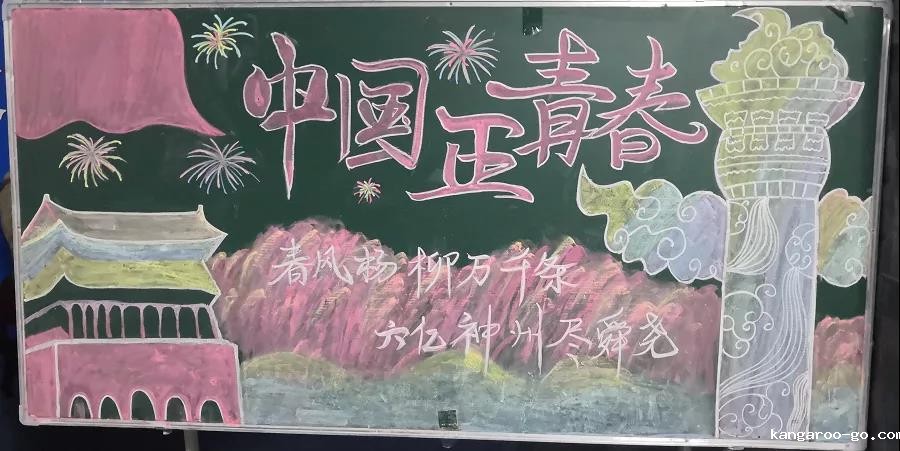 中国正青春
春风杨柳万千条
六亿神州尽舜尧
kangaroo-go.com